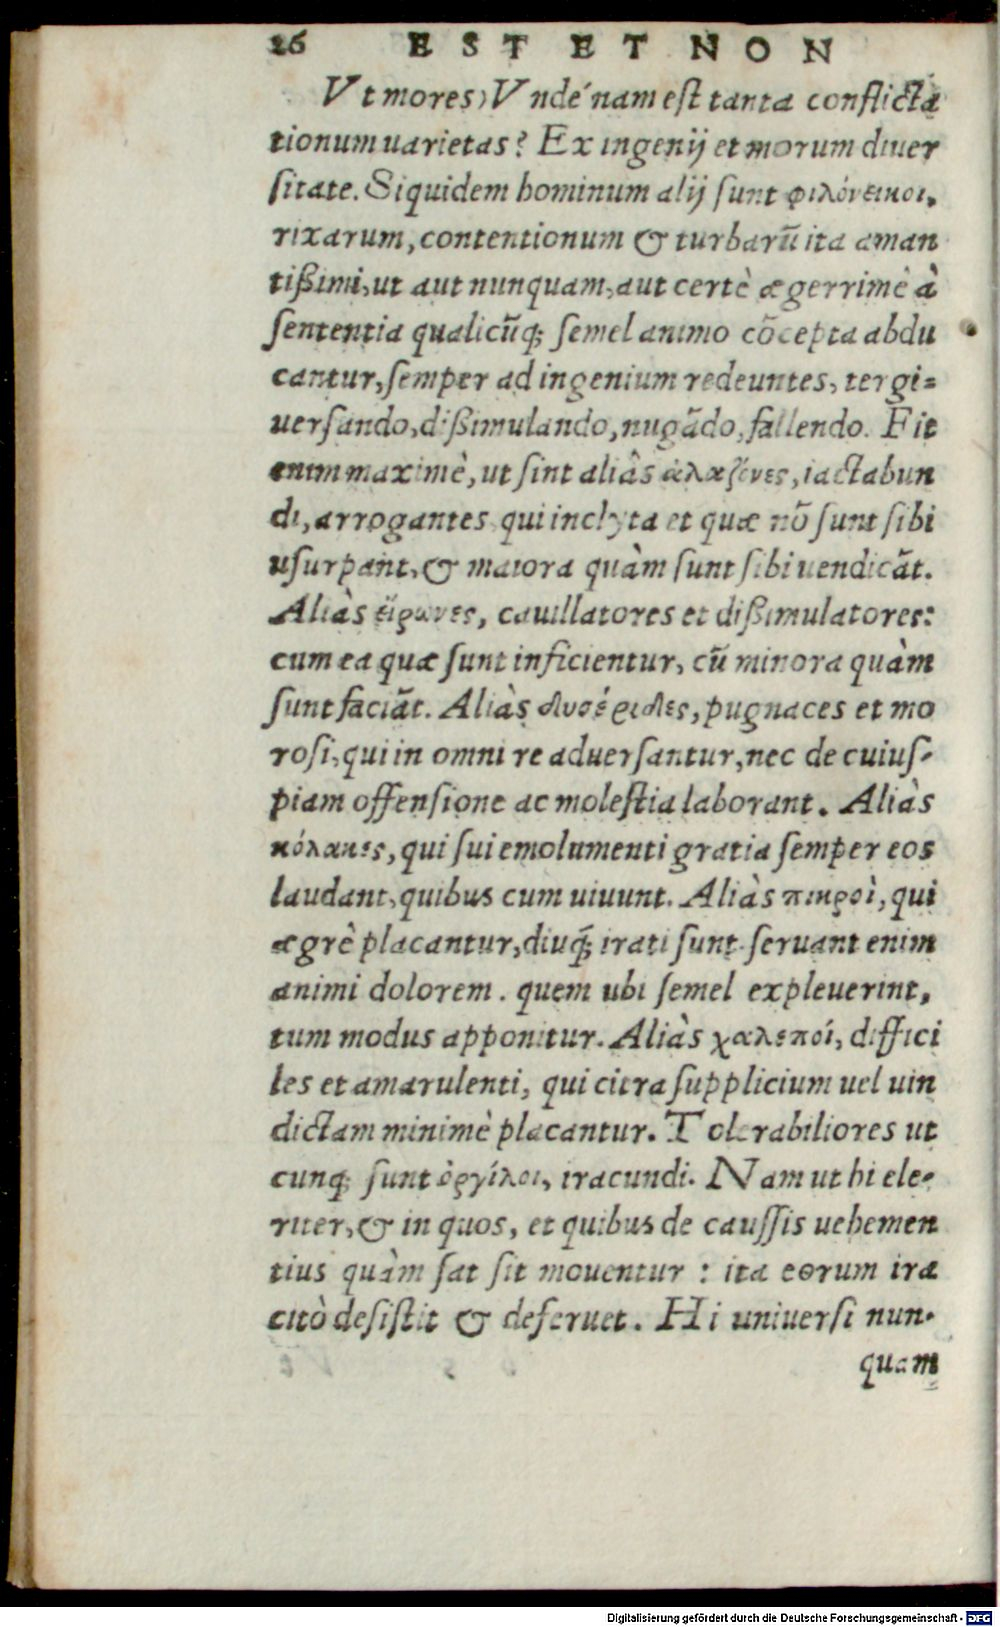 26 EST ET NON
Vt mores) Vndénam est tanta conflicta
tionum uarietas? Ex ingenij et morum diuer
sitate. Siquidem hominum alij sunt φιλόνεικοι,
rixarum, contentionum & turbarū ita aman
tißimi, ut aut nunquam, aut certè ægerrimè à
sententia qualicūq; semel animo cōcepta abdu
cantur, semper ad ingenium redeuntes, tergi=
uersando, dißimulando, nugādo, fallendo. Fit
enim maximè, ut sint aliâs ἀλαζόνες, iactabun
di, arrogantes, qui inclyta et quæ nō sunt sibi
usurpant, & maiora quàm sunt sibi uendicāt.
Aliàs εἴρωνες, cauillatores et dißimulatores:
cum ea quæ sunt inficientur, cū minora quàm
sunt faciāt. Aliàs δυσέριδες, pugnaces et mo
rosi, qui in omni re aduersantur, nec de cuius-
piam offensione ac molestia laborant. Aliàs
κόλακες, qui sui emolumenti gratia semper eos
laudant, quibus cum uiuunt. Aliàs πικροὶ, qui
ægrè placantur, diuq́; irati sunt. seruant enim
animi dolorem. quem ubi semel expleuerint,
tum modus apponitur. Aliàs χαλεποί, diffici
les et amarulenti, qui citra supplicium uel uin
dictam minimè placantur. Tolerabiliores ut
cunq; sunt ὀργίλοι, iracundi. Nam ut hi ele-
riter, & in quos, et quibus de caussis uehemen
tius quàm sat sit mouentur : ita eorum ira
citò desistit & deferuet. Hi uniuersi nun-
quam
Digitalisierung gefördert durch die Deutsche Forschungsgemeinschaft - DFG